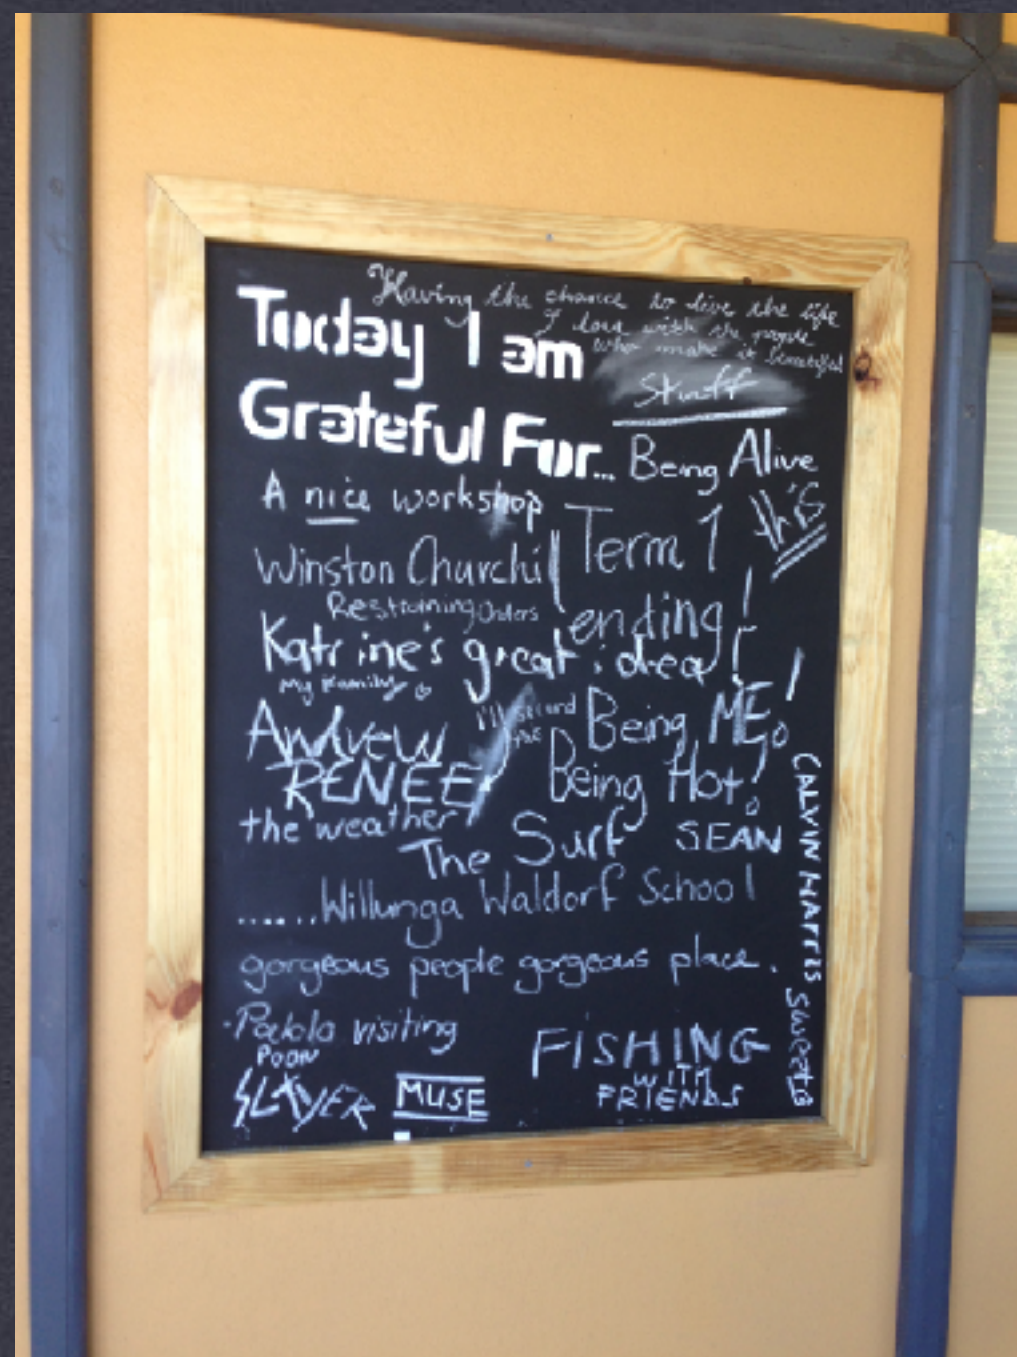 Having the chance to live the life
I love with the people
who make it beautiful
Today I am
Grateful For...
Stuff
Being Alive
A nice workshop
this
Term 1
ending!
Winston Churchill
Restraining Orders
Katrine's great idea!
My Family
second
Andrew
Being ME!
RENEE
Being Hot!
the weather
The Surf
SEAN
CALVIN HARRIS
......Willunga Waldorf School
gorgeous people gorgeous place.
Sweets
visiting
POON
SLAYER
MUSE
FISHING
WITH
FRIENDS